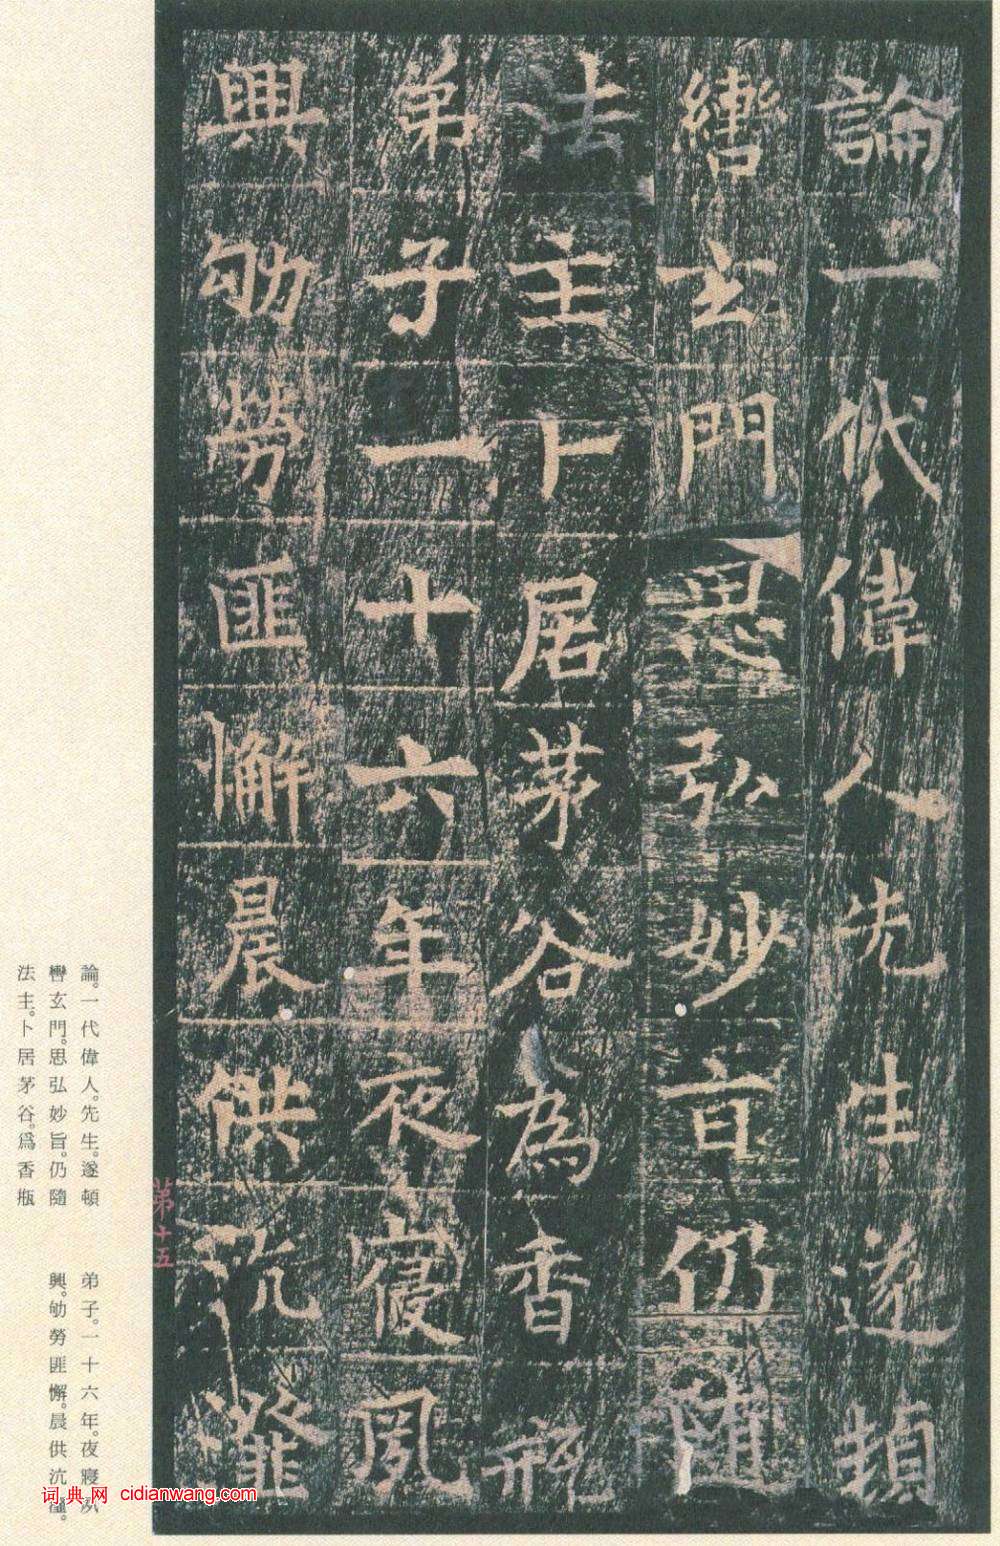 論一代偉人先生遂頓
轡玄門思弘妙旨仍隨
法主卜居茅谷為香瓶
弟子一十六年夜寢夙
興劬勞匪懈晨供沆瀣
第十五
論。一代偉人。先生。遂頓
轡玄門。思弘妙旨。仍隨
法主。卜居茅谷。爲香瓶
弟子。一十六年。夜寢夙
興。劬勞匪懈。晨供沆瀣。
词典网 cidianwang.com